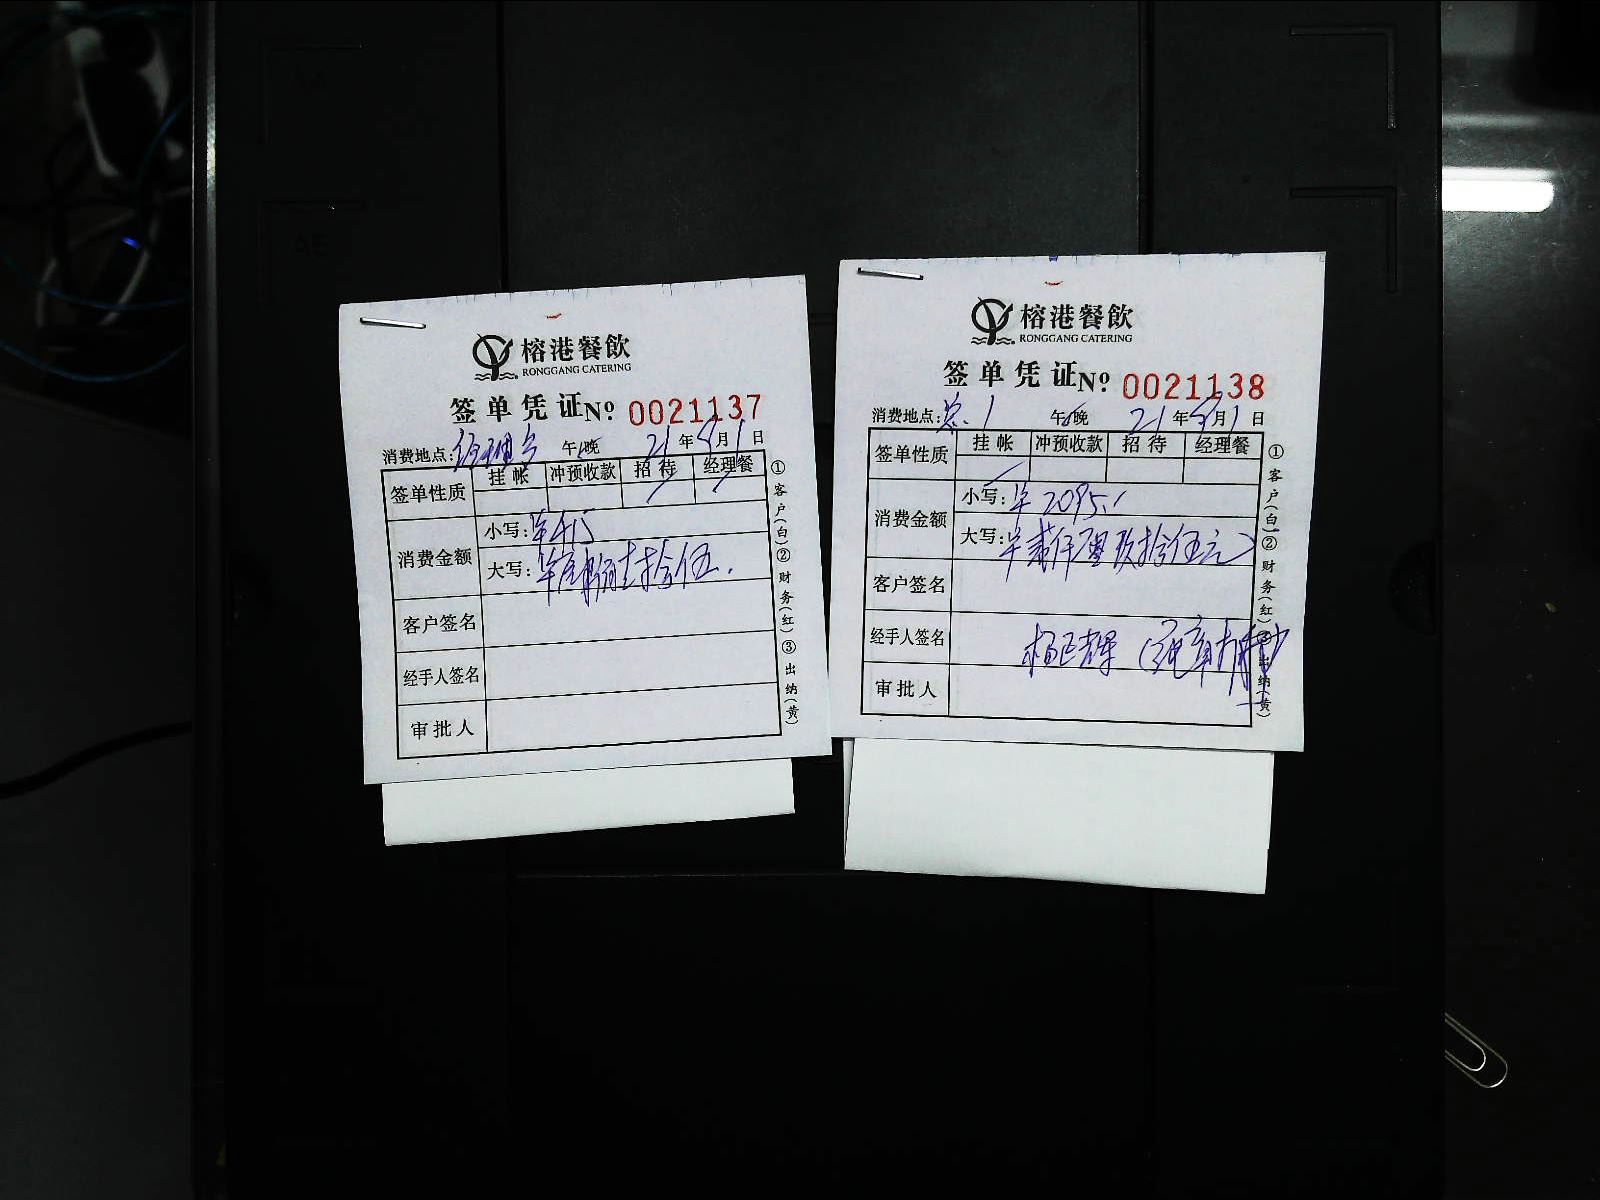 榕港餐飲
RONGGANG CATERING
签单凭证 Nº 0021137
消费地点: 午/晚 21年 月1日
签单性质 挂帐 冲预收款 招待 经理餐
消费金额
小写:
大写: 拾伍.
客户签名
经手人签名
审批人
①客户(白)②财务(红)③出纳(黄)
榕港餐飲
RONGGANG CATERING
签单凭证 Nº 0021138
消费地点: 午/晚 21年 月1日
签单性质 挂帐 冲预收款 招待 经理餐
消费金额
小写: ¥2095.
大写: 贰仟零玖拾伍元
客户签名
经手人签名 杨
审批人
①客户(白)②财务(红)③出纳(黄)